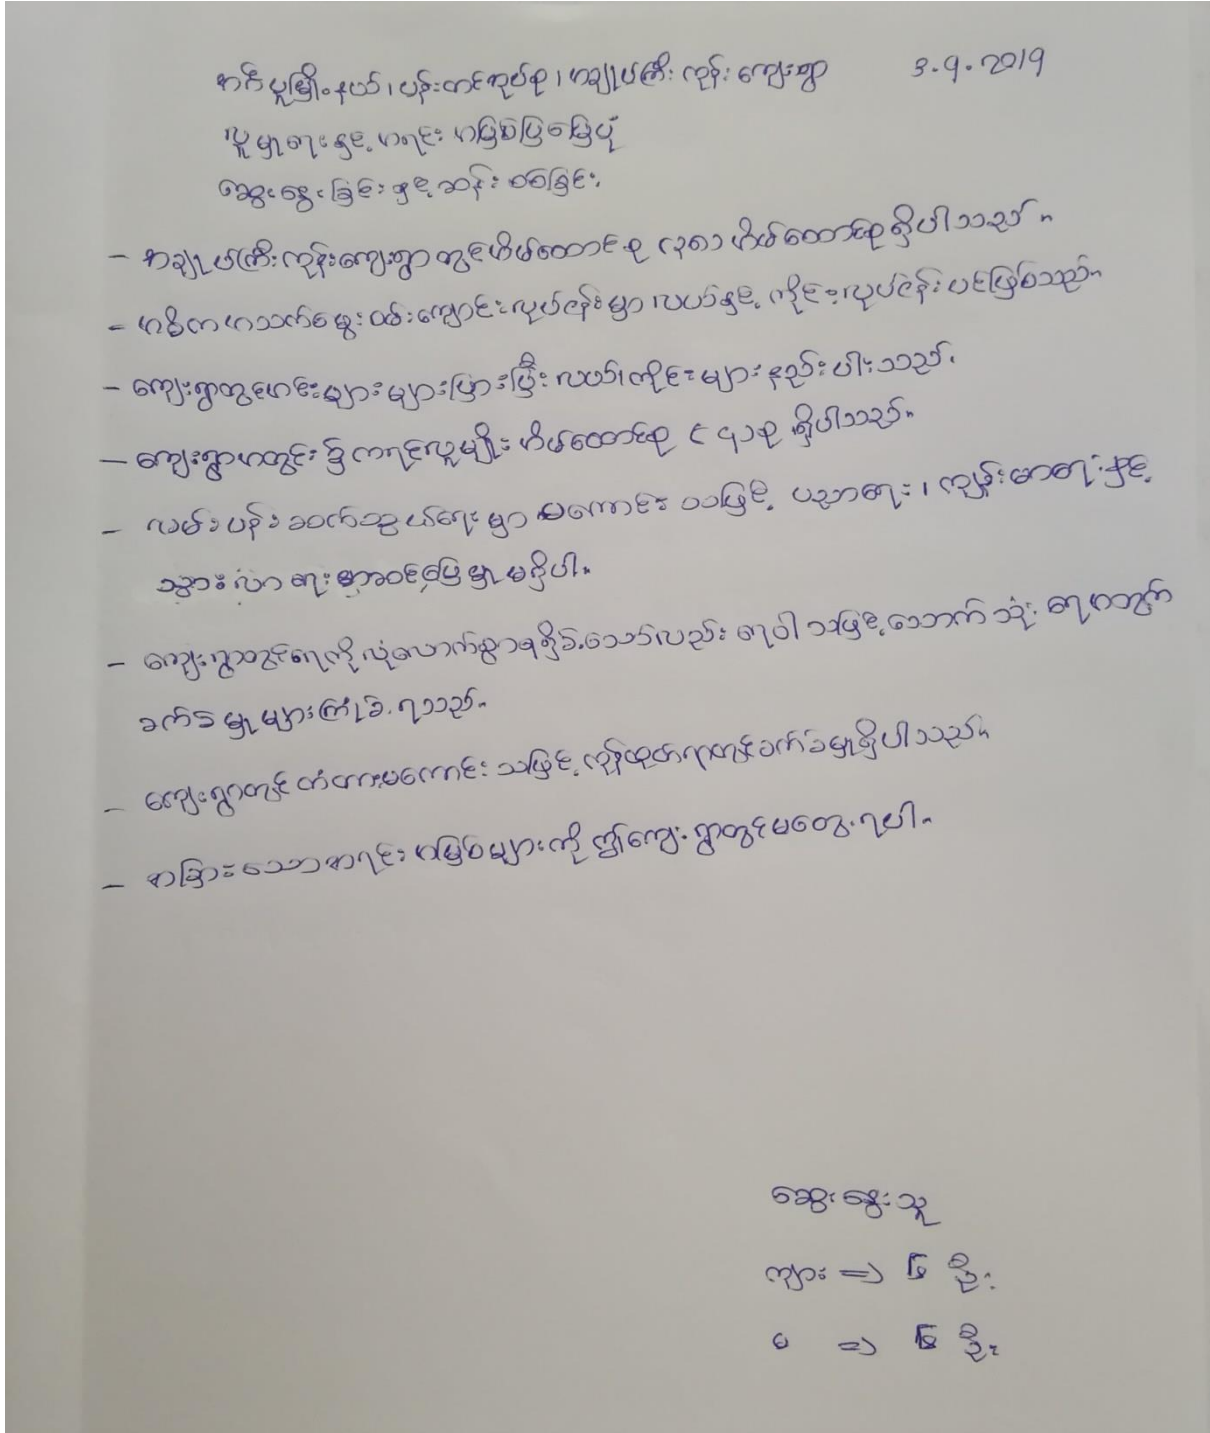 အင်္ဂပူမြို့နယ်၊ ပန်းတင်ကုပ်စု၊ အချုပ်ကြီးကုန်းကျေးရွာ 3.9.2019
လူမှုရေးနှင့် အရင်းအမြစ်ပြမြေပုံ
ဆွေးနွေးခြင်းနှင့် ဆန်းစစ်ခြင်း
- အချုပ်ကြီးကုန်းကျေးရွာတွင် အိမ်ထောင်စု အိမ်ထောင်စုရှိပါသည်။
- အဓိကအသက်မွေးဝမ်းကျောင်းလုပ်ငန်းမှာ လယ်နှင့် ကိုင်းလုပ်ငန်းပင်ဖြစ်သည်။
- ကျေးရွာတွင် အင်းများများပြားပြီး လယ်၊ကိုင်းများ နည်းပါးသည်။
- ကျေးရွာအတွင်း၌ ကရင်လူမျိုး အိမ်ထောင်စု ၄၁စု ရှိပါသည်။
- လမ်းပန်းဆက်သွယ်ရေးမှာ မကောင်းသဖြင့် ပညာရေး၊ ကျန်းမာရေးနှင့်
သွားလာရေးမှာ အဆင်ပြေမှုမရှိပါ။
- ကျေးရွာတွင် ရေကိုလုံလောက်စွာရရှိခဲ့သော်လည်း ရေဝါသဖြင့် သောက်သုံးရေအတွက်
ခက်ခဲမှုများကြုံခဲ့ရသည်။
- ကျေးရွာတွင် တံတားမကောင်းသဖြင့် ကုန်ထုတ်ရာတွင် ခက်ခဲမှုရှိပါသည်။
- အခြားသောအရင်းအမြစ်များကို ဤကျေးရွာတွင် မတွေ့ရပါ။
ဆွေးနွေးသူ
ကျား => ဦး
မ => ဦး